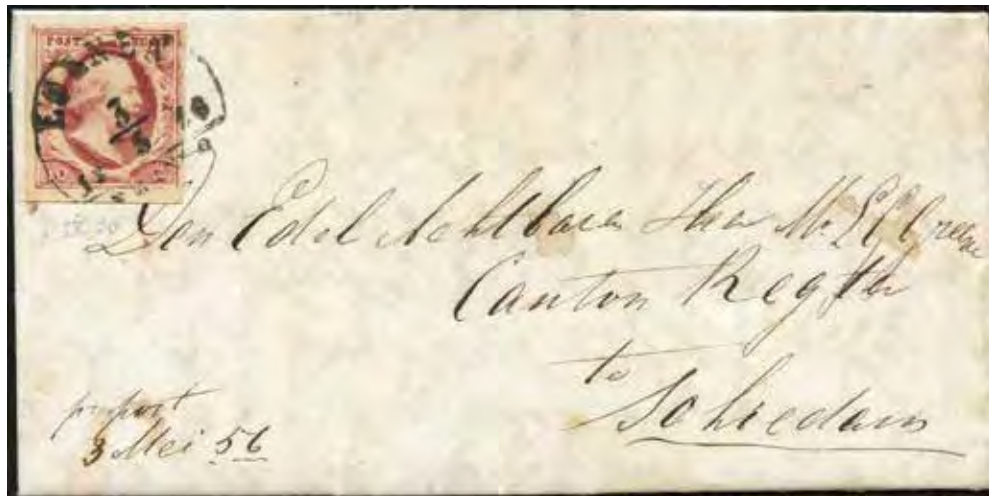 POST
3/5
Den Edel Achtbaren Heer Mr
Canton Regter
te
Schiedam
per post
3 Mei 56